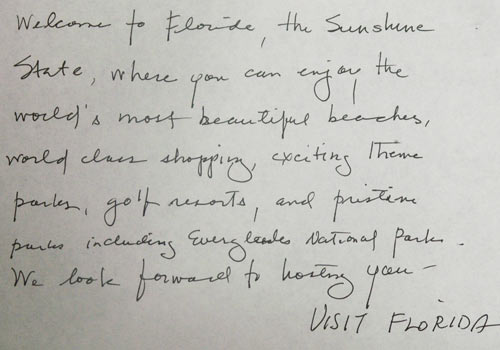 Welcome to Florida, the Sunshine
State, where you can enjoy the
world's most beautiful beaches,
world class shopping, exciting theme
parks, golf resorts, and pristine
parks including Everglades National Park.
We look forward to hosting you-
VISIT FLORIDA